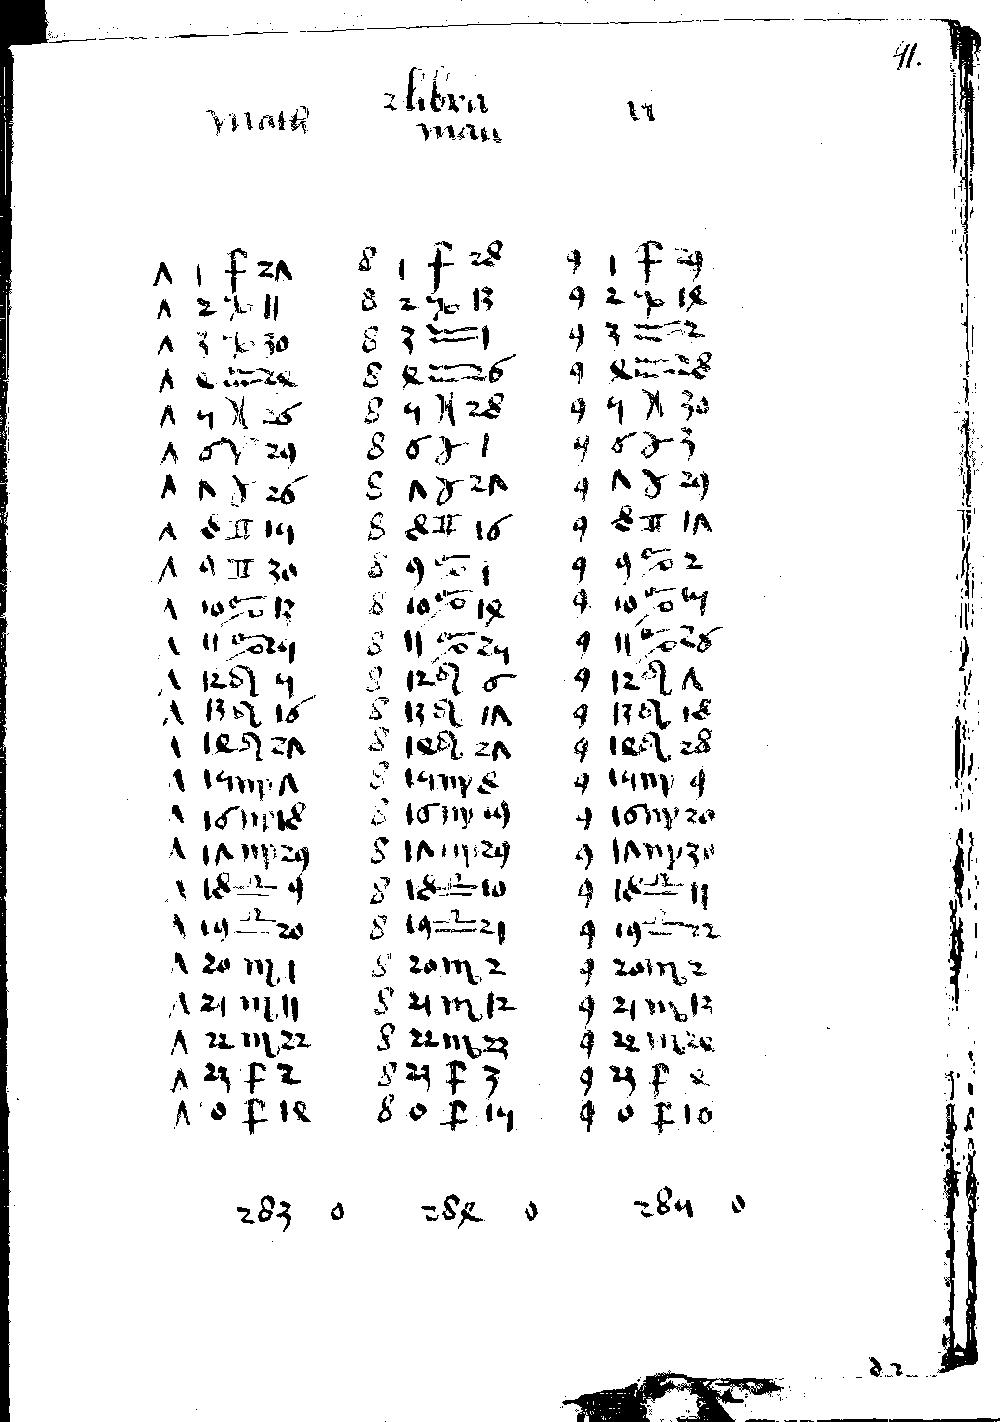 2 libra
math man 11
7 1 ♐ 27 8 1 ♐ 28 9 1 ♐ 29
7 2 ♑ 11 8 2 ♑ 13 9 2 ♑ 14
7 3 ♑ 30 8 3 ♒ 1 9 3 ♒ 2
7 4 ♒ 24 8 4 ♒ 26 9 4 ♒ 28
7 5 ♓ 26 8 5 ♓ 28 9 5 ♓ 30
7 6 ♈ 29 8 6 ♉ 1 9 6 ♉ 3
7 7 ♉ 26 8 7 ♉ 27 9 7 ♉ 29
7 8 ♊ 15 8 8 ♊ 16 9 8 ♊ 17
7 9 ♊ 30 8 9 ♋ 1 9 9 ♋ 2
7 10 ♋ 13 8 10 ♋ 14 9 10 ♋ 15
7 11 ♋ 25 8 11 ♋ 25 9 11 ♋ 26
7 12 ♌ 5 8 12 ♌ 6 9 12 ♌ 7
7 13 ♌ 16 8 13 ♌ 17 9 13 ♌ 18
7 14 ♌ 27 8 14 ♌ 27 9 14 ♌ 28
7 15 ♍ 7 8 15 ♍ 8 9 15 ♍ 9
7 16 ♍ 18 8 16 ♍ 19 9 16 ♍ 20
7 17 ♍ 29 8 17 ♍ 29 9 17 ♍ 30
7 18 ♎ 9 8 18 ♎ 10 9 18 ♎ 11
7 19 ♎ 20 8 19 ♎ 21 9 19 ♎ 22
7 20 ♏ 1 8 20 ♏ 2 9 20 ♏ 2
7 21 ♏ 11 8 21 ♏ 12 9 21 ♏ 13
7 22 ♏ 22 8 22 ♏ 23 9 22 ♏ 24
7 23 ♐ 2 8 23 ♐ 3 9 23 ♐ 4
7 0 ♐ 14 8 0 ♐ 15 9 0 ♐ 10
283 0 284 0 285 0
d 2